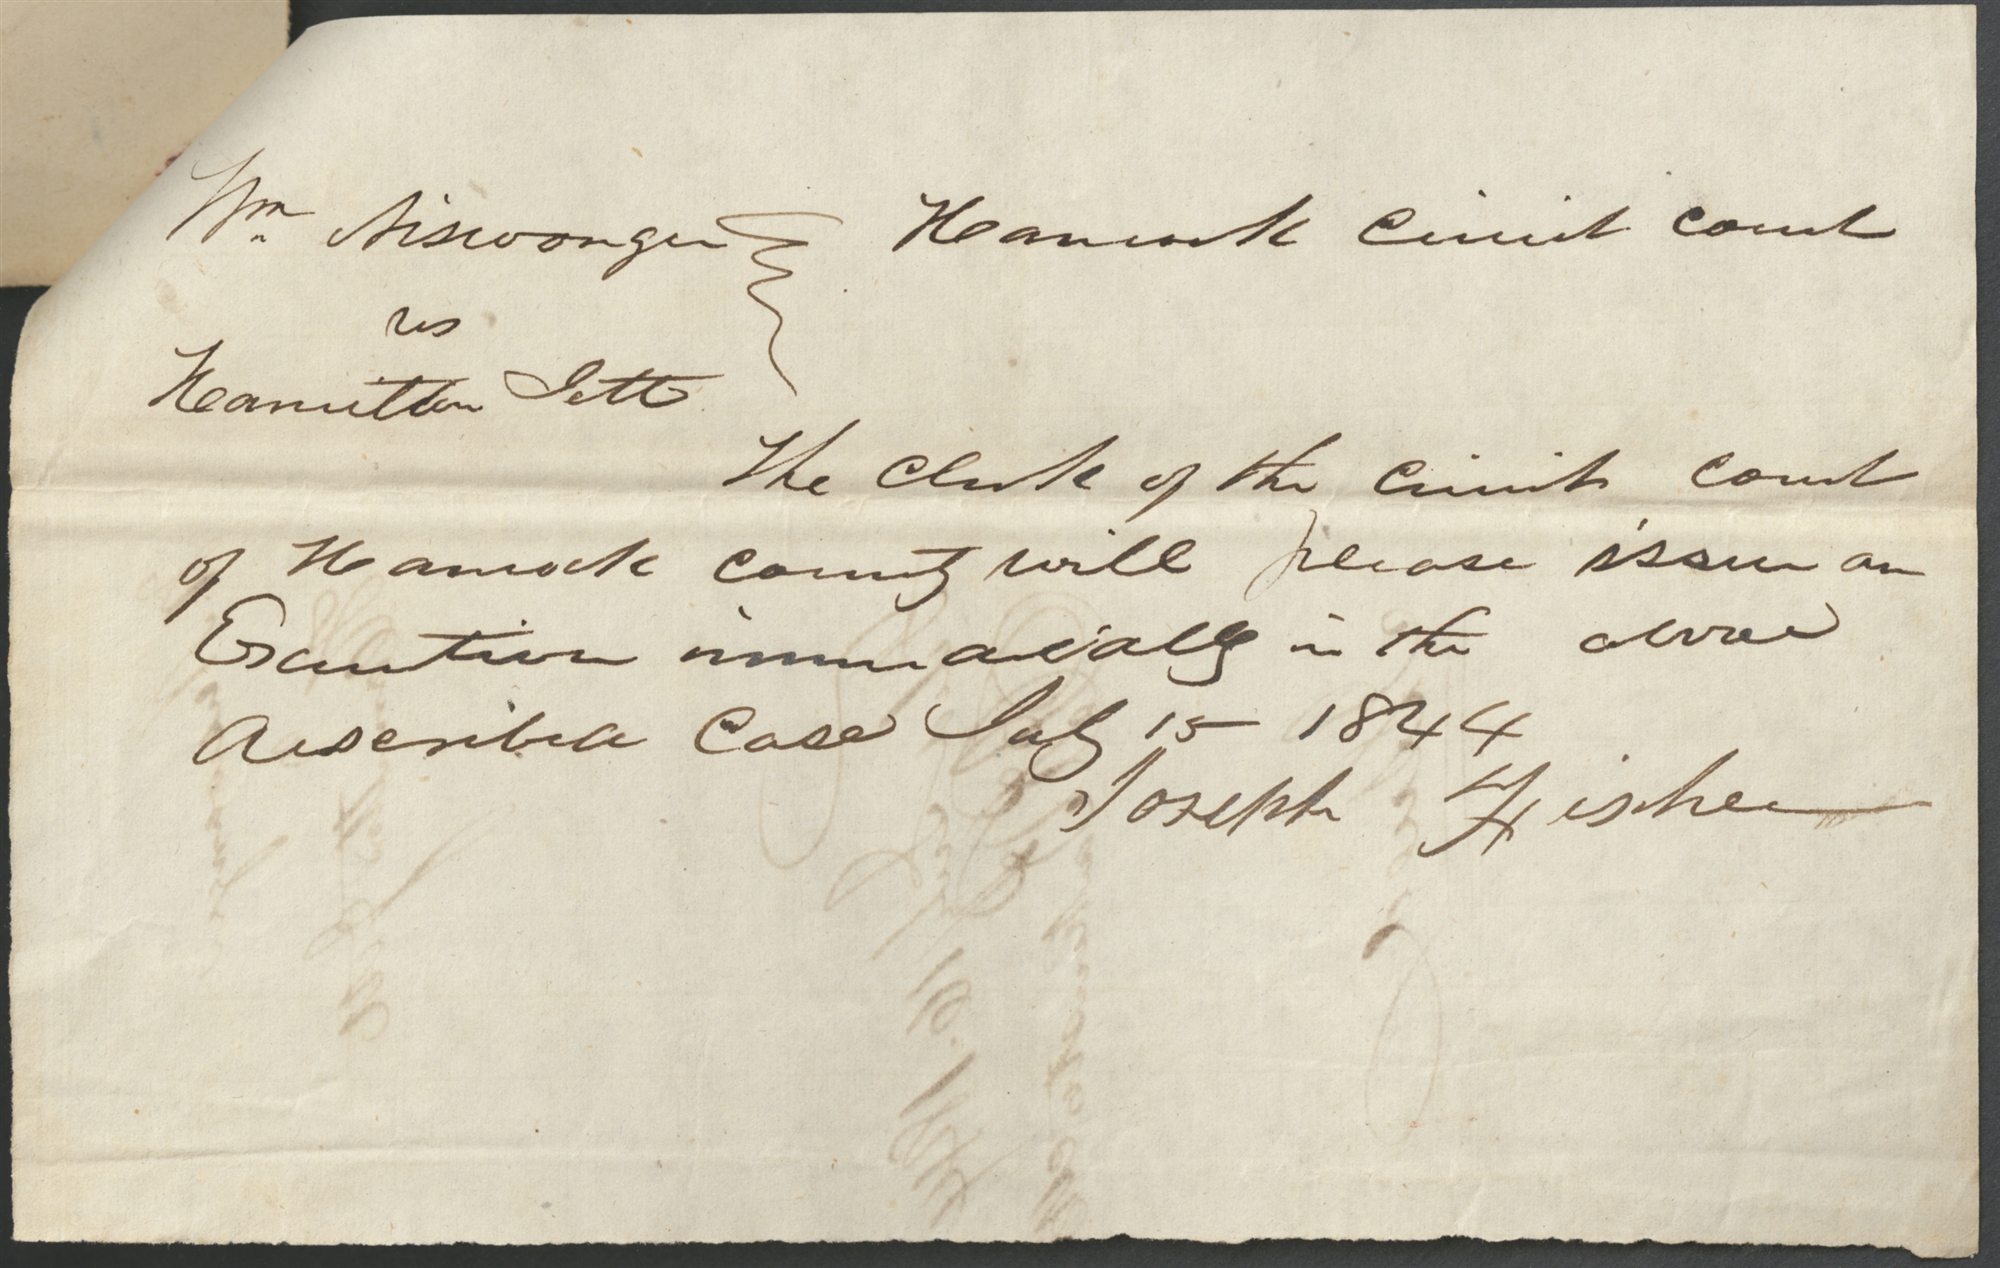 Wm Niswonger } Hancock Circuit Court
vs
Hamilton Jett
The Clerk of the Circuit Court
of Hancock County will please issue an
Execution immediatly in the above
described Case July 15 1844
Joseph Fisher